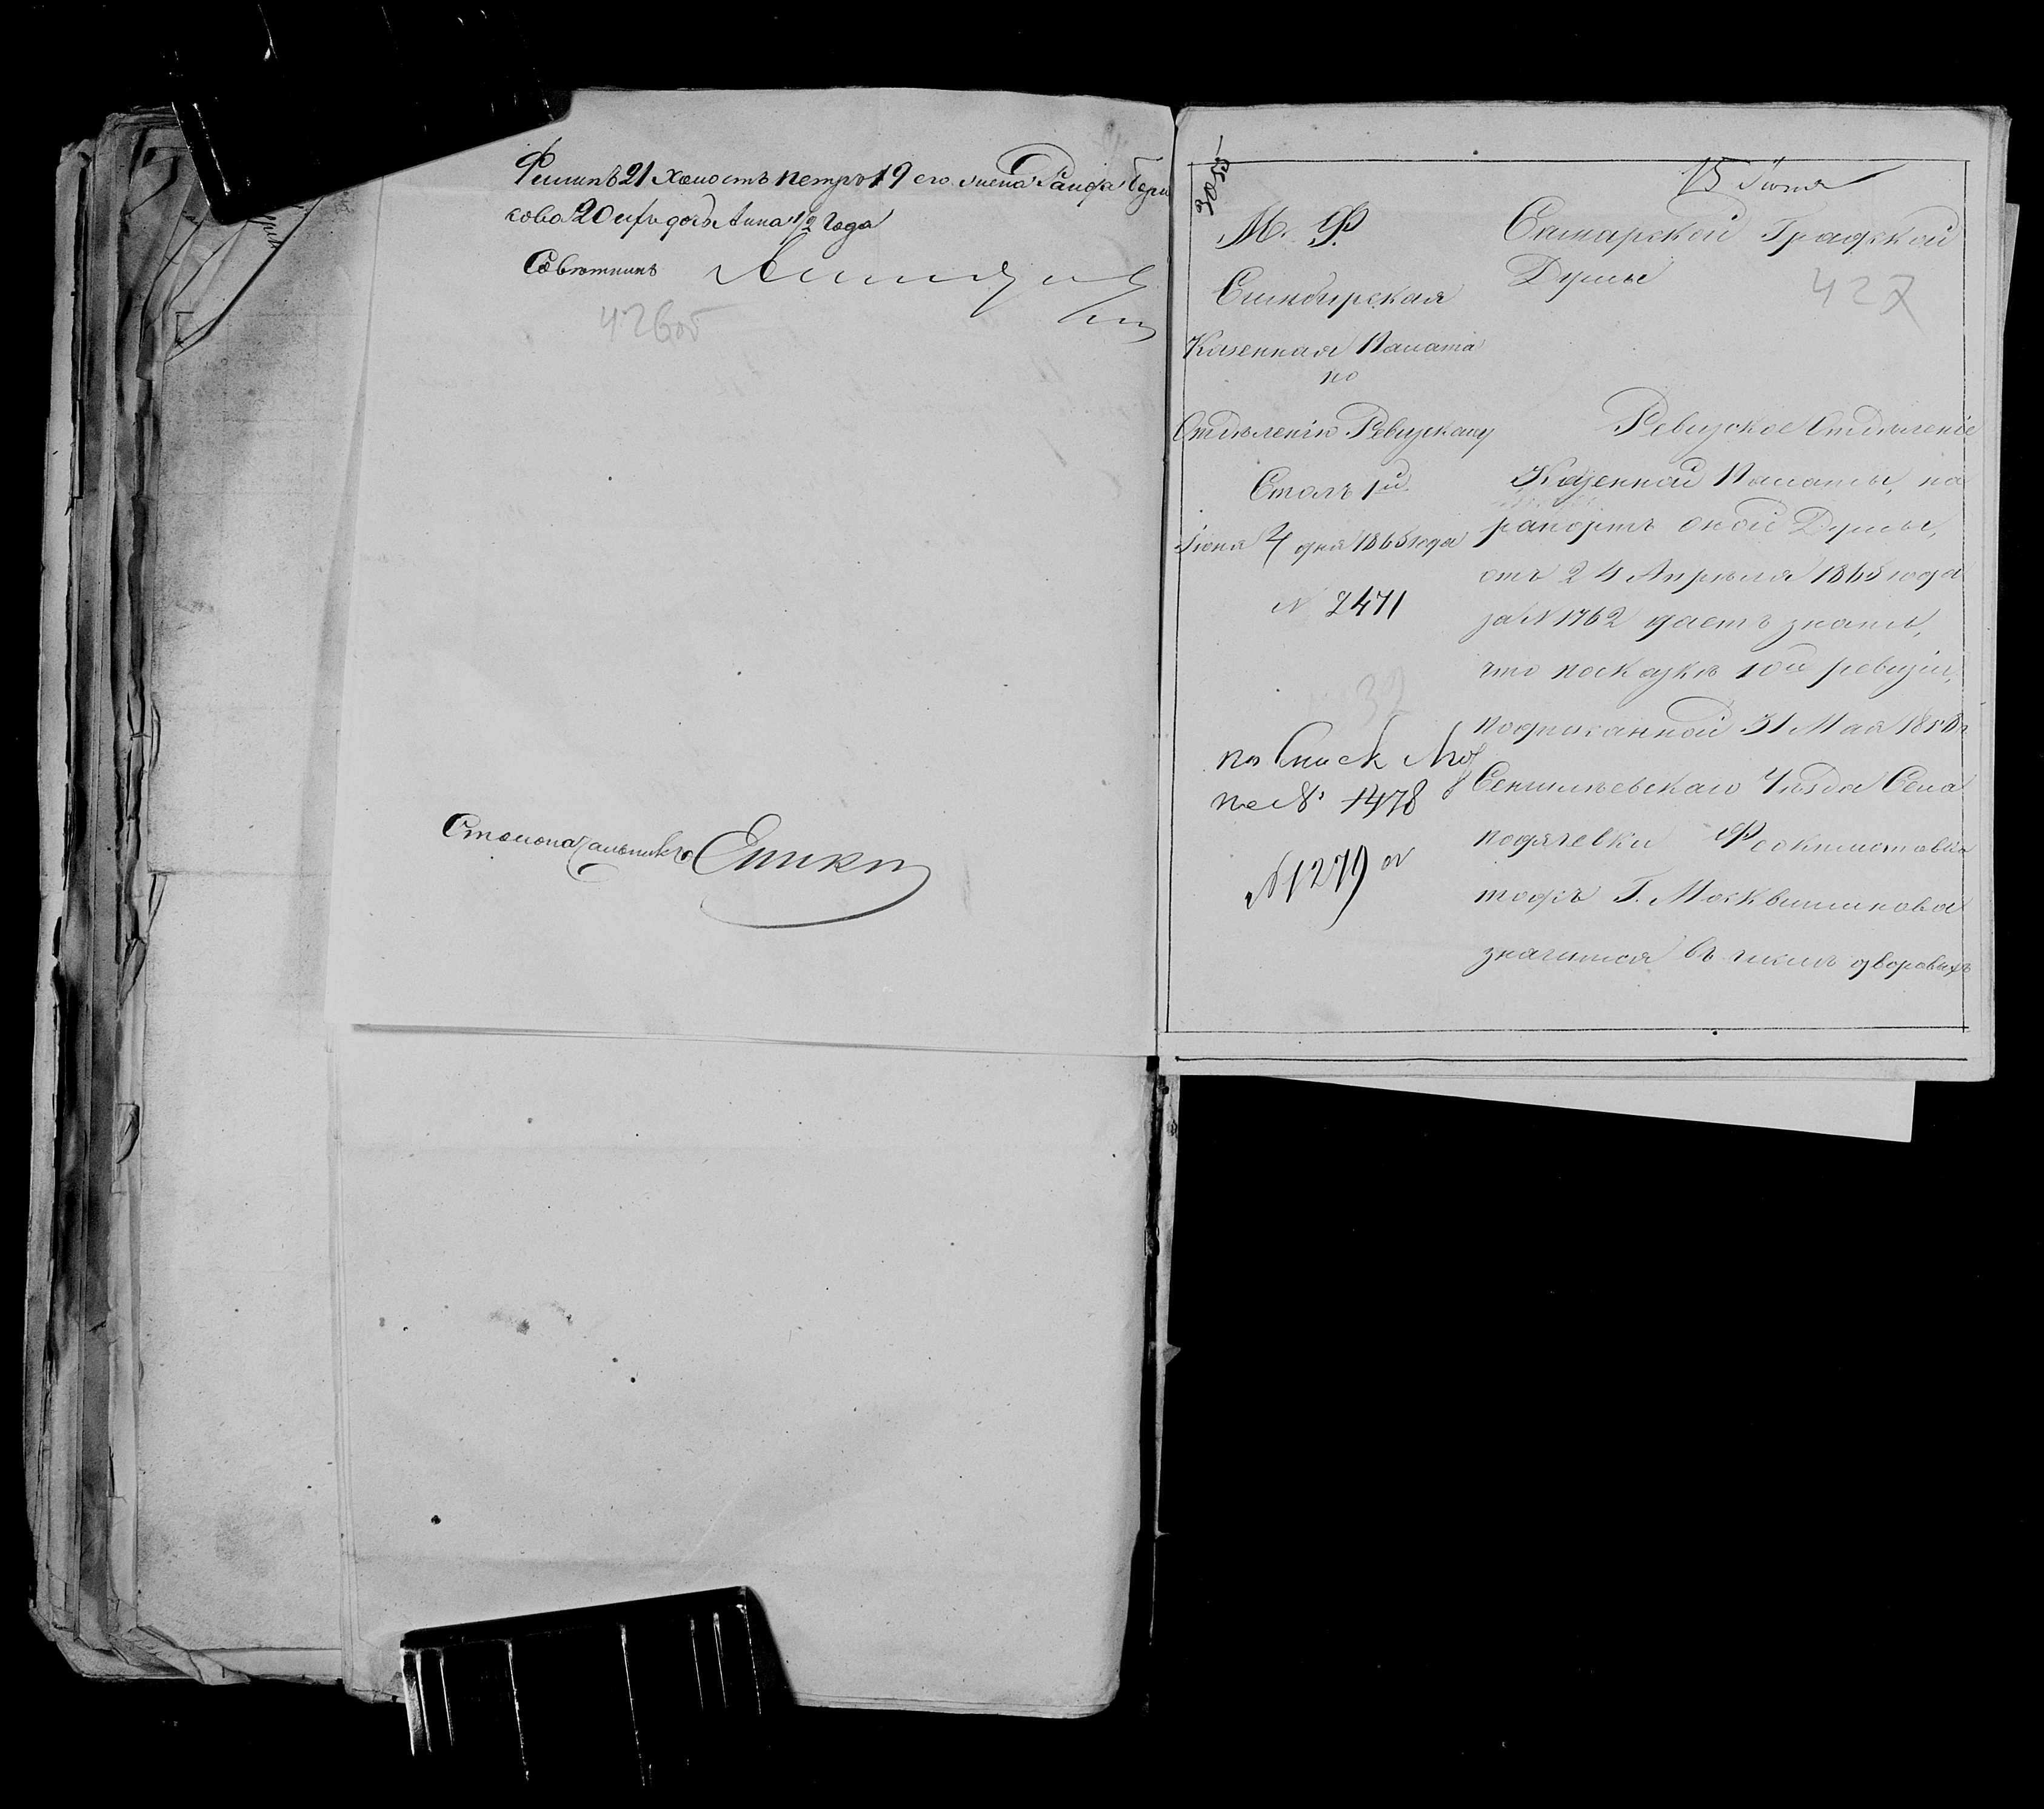 Филипъ 21 холостъ Петръ 19 его жена
кова 20 ихъ дочь Анна 1/2 года
Совѣтникъ
426об
Столоначальникъ
3055
15 Іюня
М. Ф.
Симбирская
Казенная Палата
по
Отдѣленію Ревизскому
Столъ 1й
Іюня 4 дня 1865 года
N 2471
32
№ 1478
№ 1279
Самарской Градской
Думы
427
Ревизское Отдѣленіе
Казенной Палаты, на
рапортъ оной Думы,
отъ 24 Апрѣля 1865 года
за N 1762 даетъ знать,
что по сказкѣ 10й ревизіи,
подписанной 31 Мая 1858 г
Сенгилѣевскаго Уѣзда Села
Подячевки Феоктистовка
тожъ Г. Москвитинова
значится въ числѣ дворовыхъ